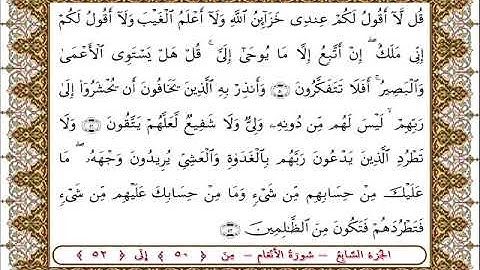 قُل لَّآ أَقُولُ لَكُمْ عِندِى خَزَآئِنُ ٱللَّهِ وَلَآ أَعْلَمُ ٱلْغَيْبَ وَلَآ أَقُولُ لَكُمْ
إِنِّى مَلَكٌ ۖ إِنْ أَتَّبِعُ إِلَّا مَا يُوحَىٰٓ إِلَىَّ ۚ قُلْ هَلْ يَسْتَوِى ٱلْأَعْمَىٰ
وَٱلْبَصِيرُ ۚ أَفَلَا تَتَفَكَّرُونَ ۝٥٠ وَأَنذِرْ بِهِ ٱلَّذِينَ يَخَافُونَ أَن يُحْشَرُوٓا۟ إِلَىٰ
رَبِّهِمْ ۙ لَيْسَ لَهُم مِّن دُونِهِۦ وَلِىٌّ وَلَا شَفِيعٌ لَّعَلَّهُمْ يَتَّقُونَ ۝٥١ وَلَا
تَطْرُدِ ٱلَّذِينَ يَدْعُونَ رَبَّهُم بِٱلْغَدَوٰةِ وَٱلْعَشِىِّ يُرِيدُونَ وَجْهَهُۥ ۖ مَا
عَلَيْكَ مِنْ حِسَابِهِم مِّن شَىْءٍ وَمَا مِنْ حِسَابِكَ عَلَيْهِم مِّن شَىْءٍ
فَتَطْرُدَهُمْ فَتَكُونَ مِنَ ٱلظَّـٰلِمِينَ ۝٥٢
الجزء السابع – سورة الأنعام – من ﴿ ٥٠ ﴾ إلى ﴿ ٥٢ ﴾